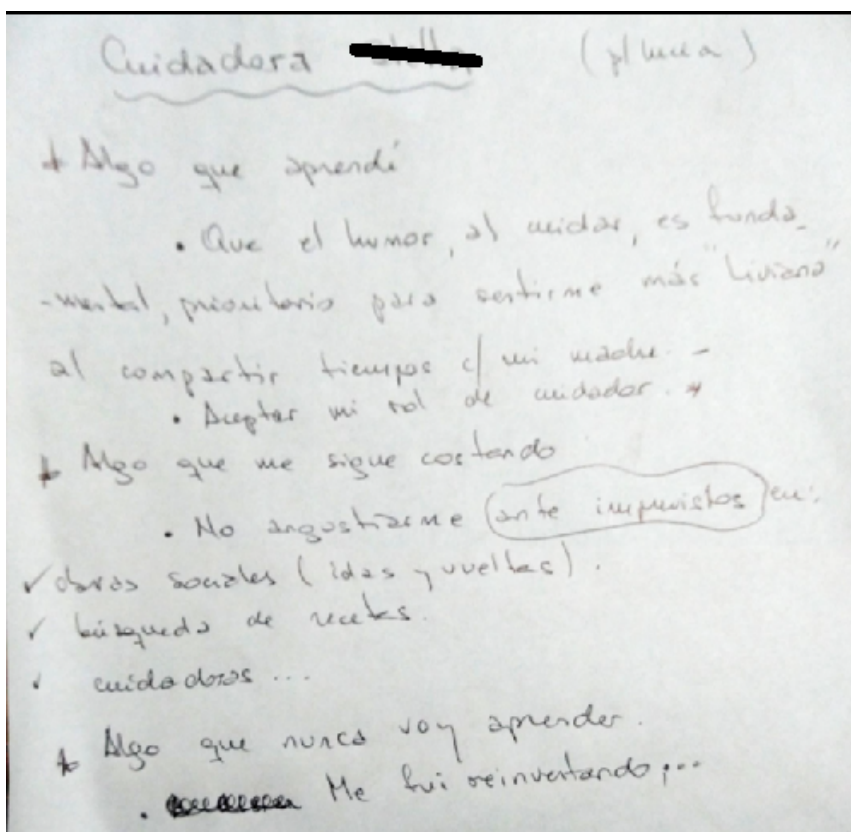 Cuidadora
+ Algo que aprendí
• Que el humor, al cuidar, es funda-
-mental, prioritario para sentirme más "liviana"
al compartir tiempos c/ mi madre. -
• Aceptar mi rol de cuidador.
+ Algo que me sigue costando
• No angustiarme (ante imprevistos) en:
✓ obras sociales (idas y vueltas).
✓ búsqueda de recetas.
✓ cuidadoras ...
+ Algo que nunca voy aprender.
• Me fui reinventando,...